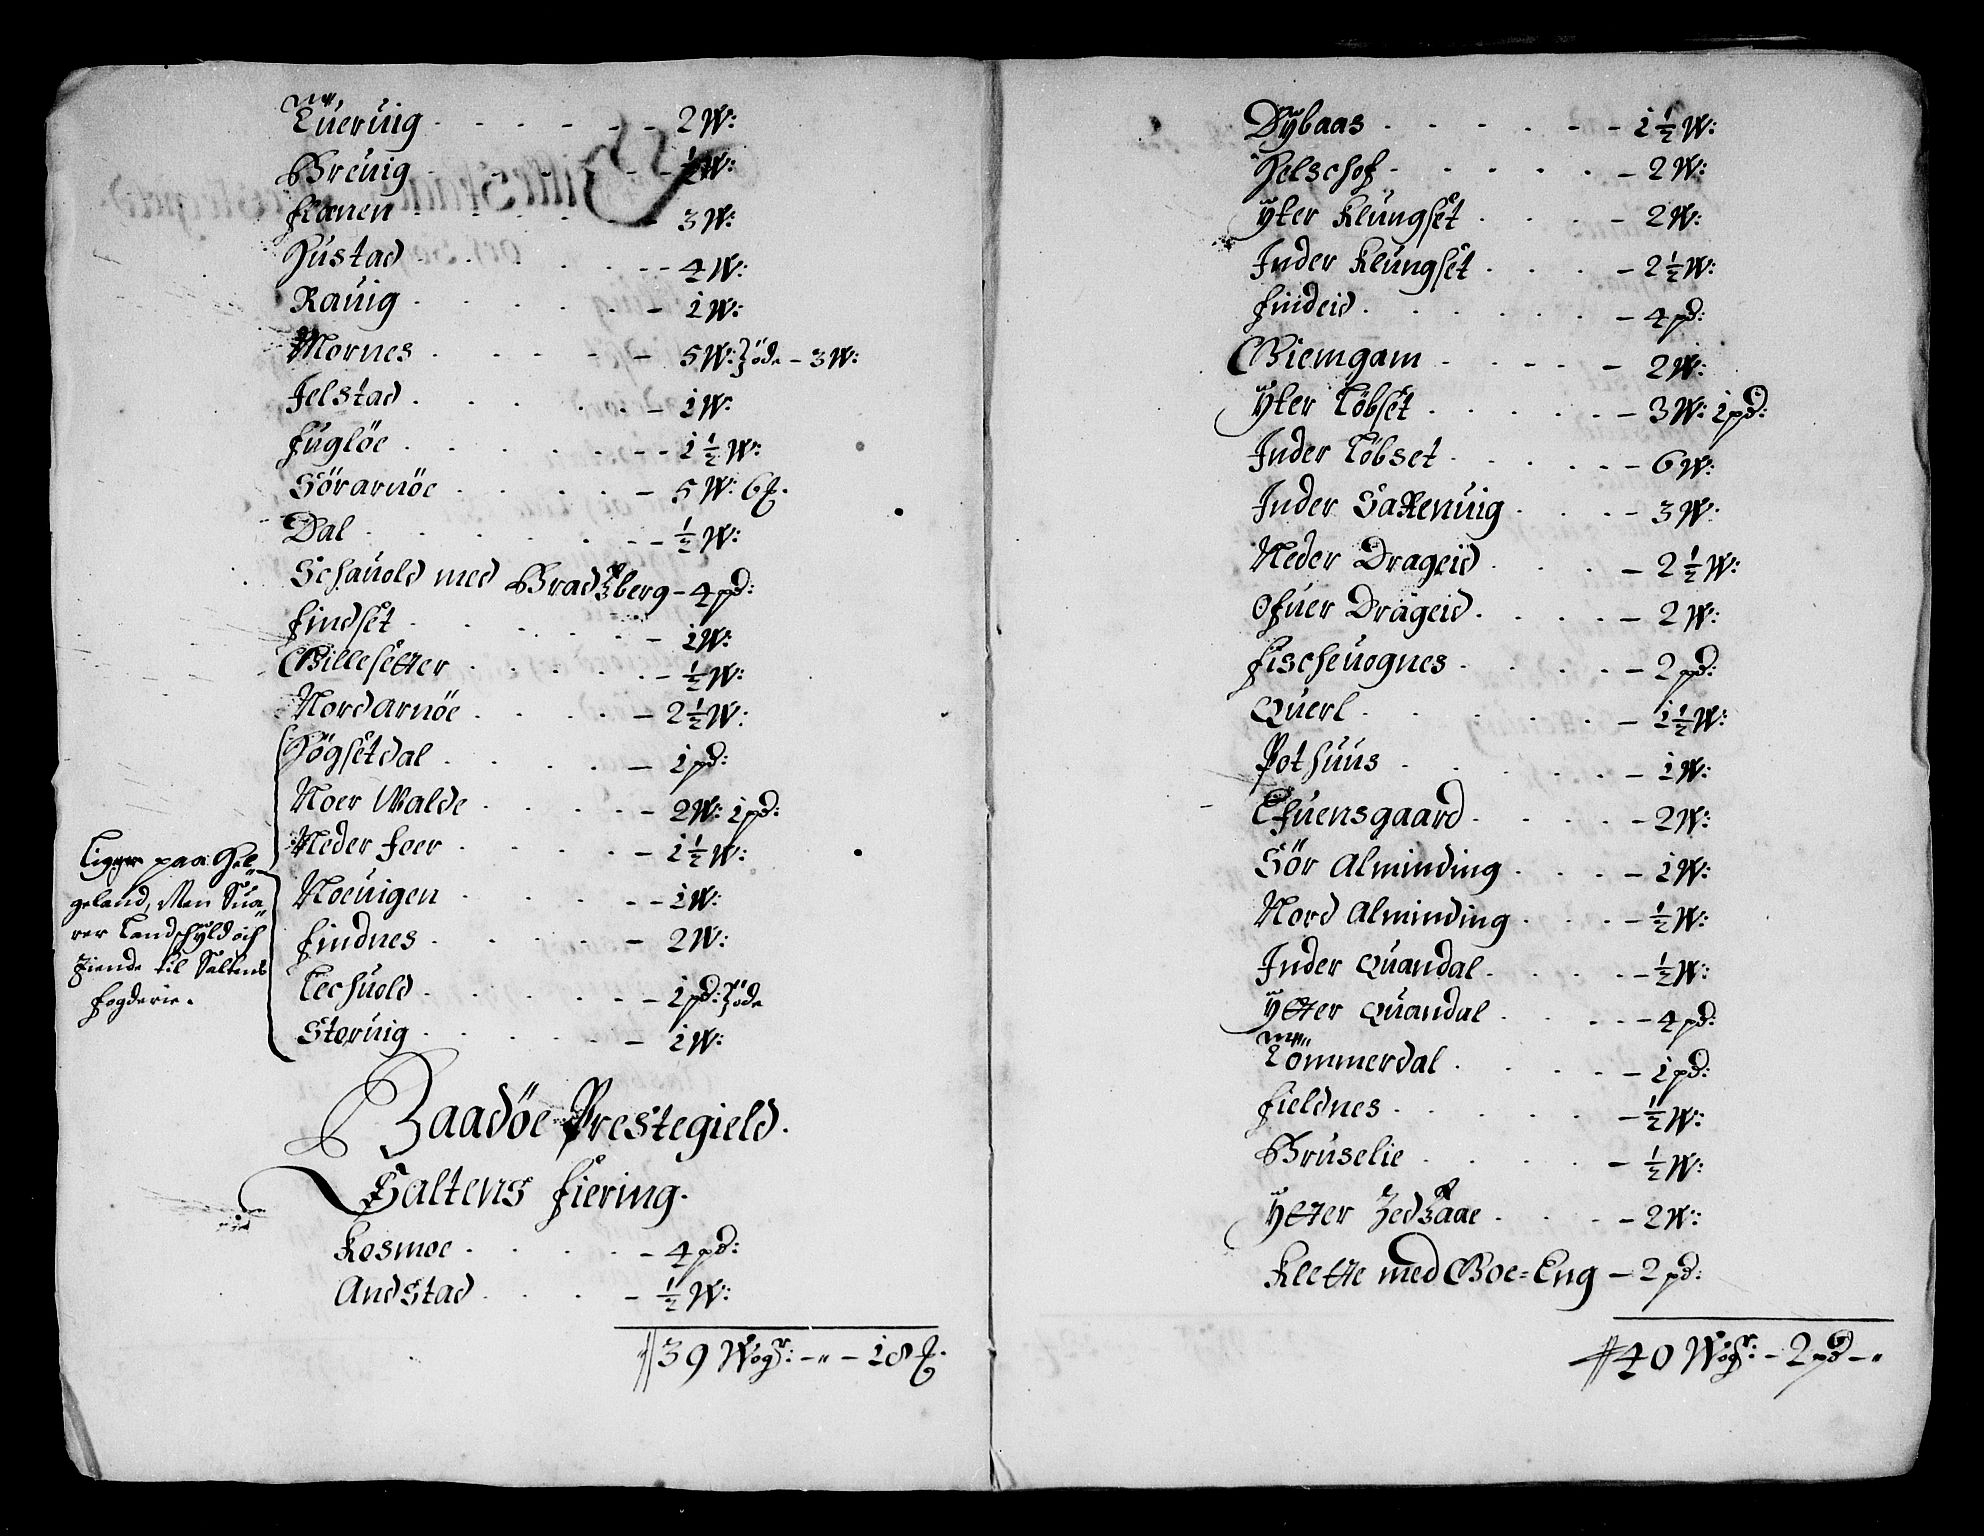 Lüeruig - 2 W:
Breuig - ½ W:
Flønen - 3 W:
Hustad - 4 W:
Rauig - 1 W:
Mornes - 5 W: Øde - 3 W:
Jelstad - 1 W:
Fugløe - 1½ W:
Sörarnöe - 5 W: 6 ℔.
Dal - ½ W:
Schauold med Bradsberg - 4 pd:
Findset - 1 W:
Billesetter - ½ W:
Nordarnöe - 2½ W:
Högsetdal - 1 pd:
Noer Walde - 2 W: 1 pd:
Neder Feer - 1½ W:
Noeuigen - 1 W:
Findnes - 2 W:
Lechuold - 1 pd: Øde
Storuig - 1 W:
Ligger paa Hel„
geland, Men Sua„
rer Landschyld och
Tiende til Saltens
Fogderie.
Baadöe Prestegield.
Saltens Fiering.
Kosmoe - 4 pd:
Andstad - ½ W:
39 Wogr: - „ - 18 ℔.
Dybaas - 1½ W:
Helschof - 2 W:
Yter Klungset - 2 W:
Inder Klungset - 2½ W:
Findeid - 4 pd:
Biemgam - 2 W:
Yter Löbset - 3 W: 1 pd:
Inder Löbset - 6 W:
Inder Saxenuig - 3 W:
Neder Drageid - 2½ W:
Ofuer Drageid - 2 W:
Fischeuognes - 2 pd:
Querl - 1½ W:
Pothuus - 1 W:
Efuensgaard - 2 W:
Sör Alminding - 1 W:
Nord Alminding - ½ W:
Inder Quandal - ½ W:
Ytter Quandal - 4 pd:
Tömmerdal - 1 pd:
Fieldnes - ½ W:
Bruselie - ½ W:
Ytter - 2 W:
Klette med Boe=Eng - 2 pd:
40 Wogr: - 2 pd - „